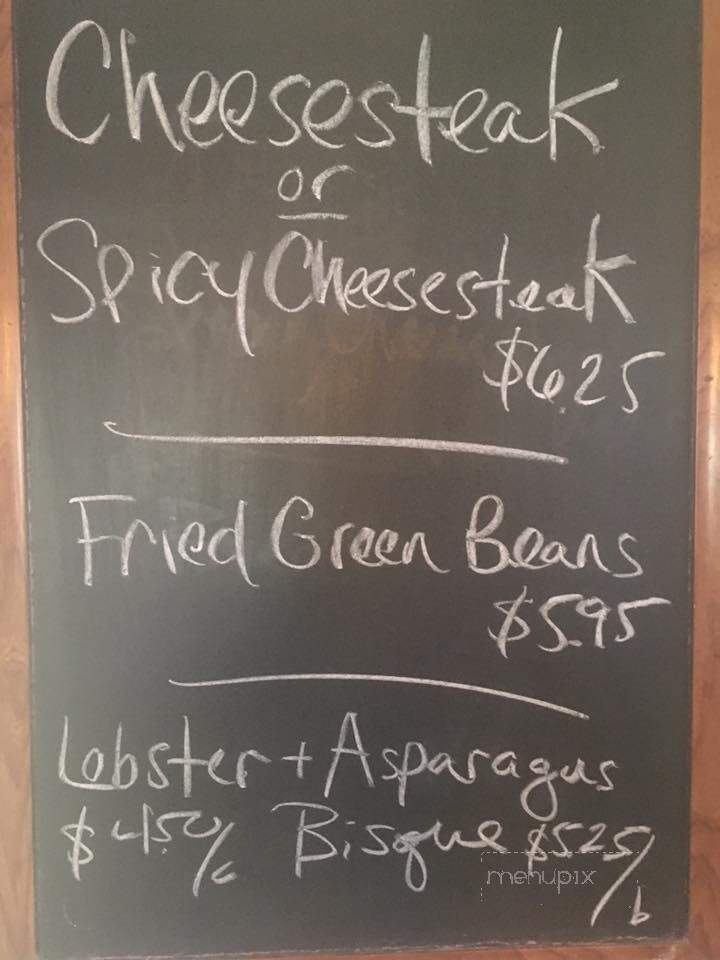 Cheesesteak
or
Spicy Cheesesteak
$6.25
Fried Green Beans
$5.95
Lobster + Asparagus
$4.50/c Bisque $5.25/b
menupix